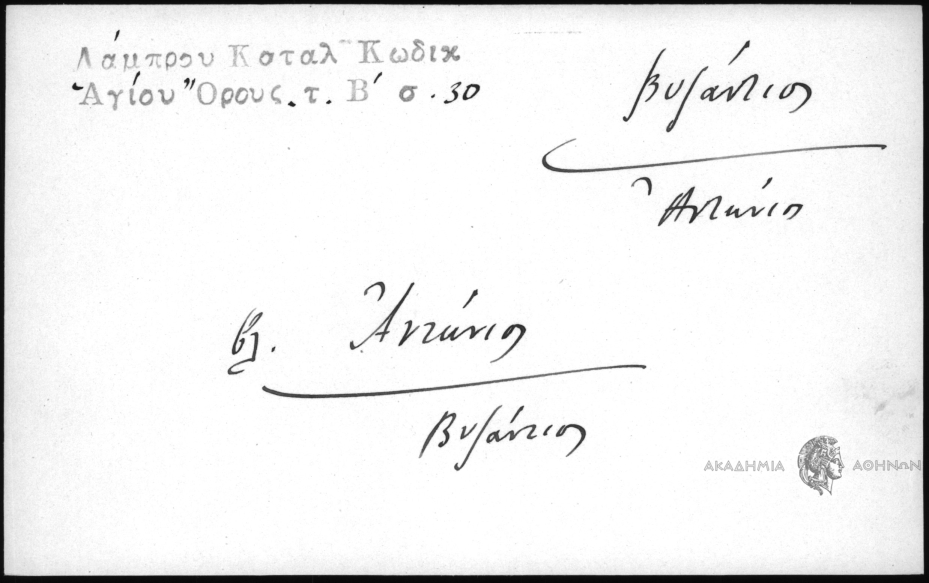 Λάμπρου Καταλ Κωδικ
Ἁγίου Ὄρους. τ. Β' σ. 30
Βυζάντιος
Ἀντώνιος
βλ. Ἀντώνιος
Βυζάντιος
ΑΚΑΔΗΜΙΑ ΑΘΗΝΩΝ